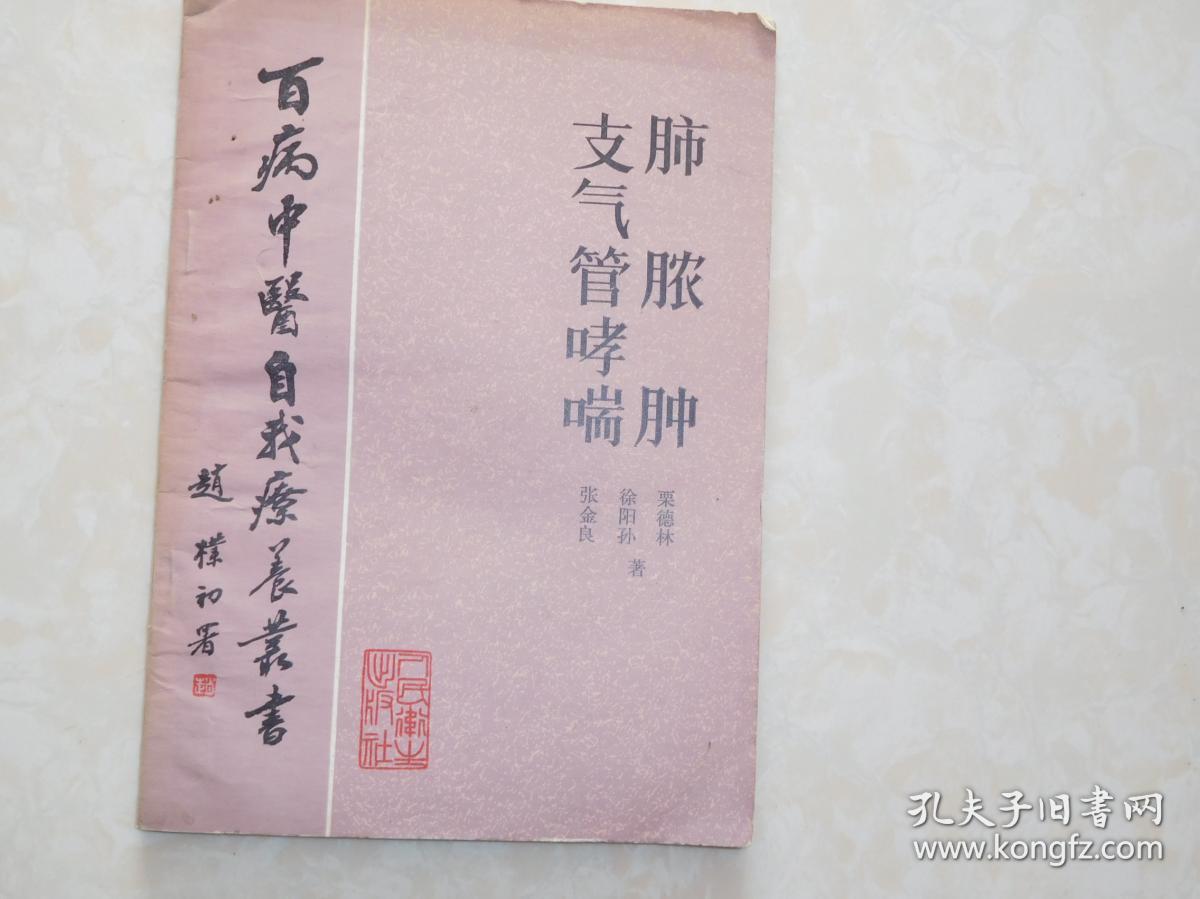 百病中醫自我療養叢書
趙樸初署
肺脓肿
支气管哮喘
栗德林
徐阳孙
张金良
著
人民衛生
出版社
孔夫子旧书网
www.kongfz.com